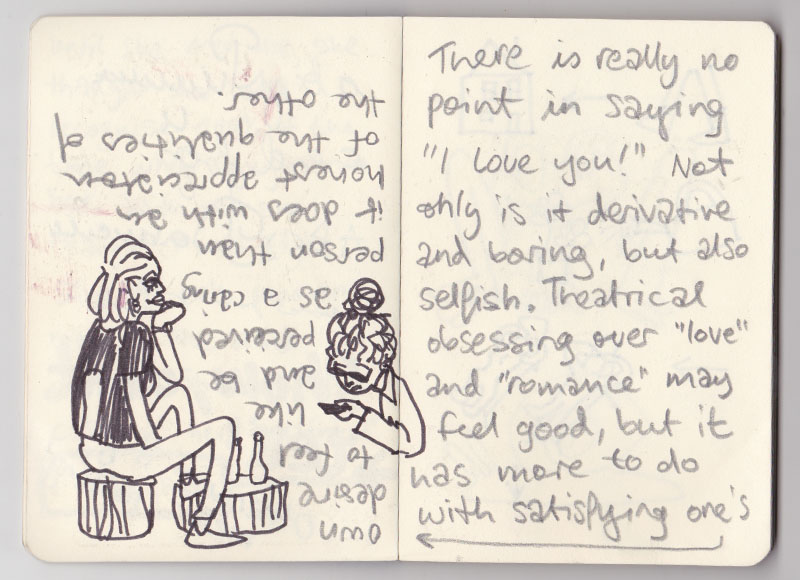 There is really no
point in saying
"I love you!" Not
only is it derivative
and boring, but also
selfish. Theatrical
obsessing over "love"
and "romance" may
feel good, but it
has more to do
with satisfying one's
own
desire
to feel
like
and be
perceived
as a caring
person than
it does with an
honest appreciation
of the qualities of
the other.